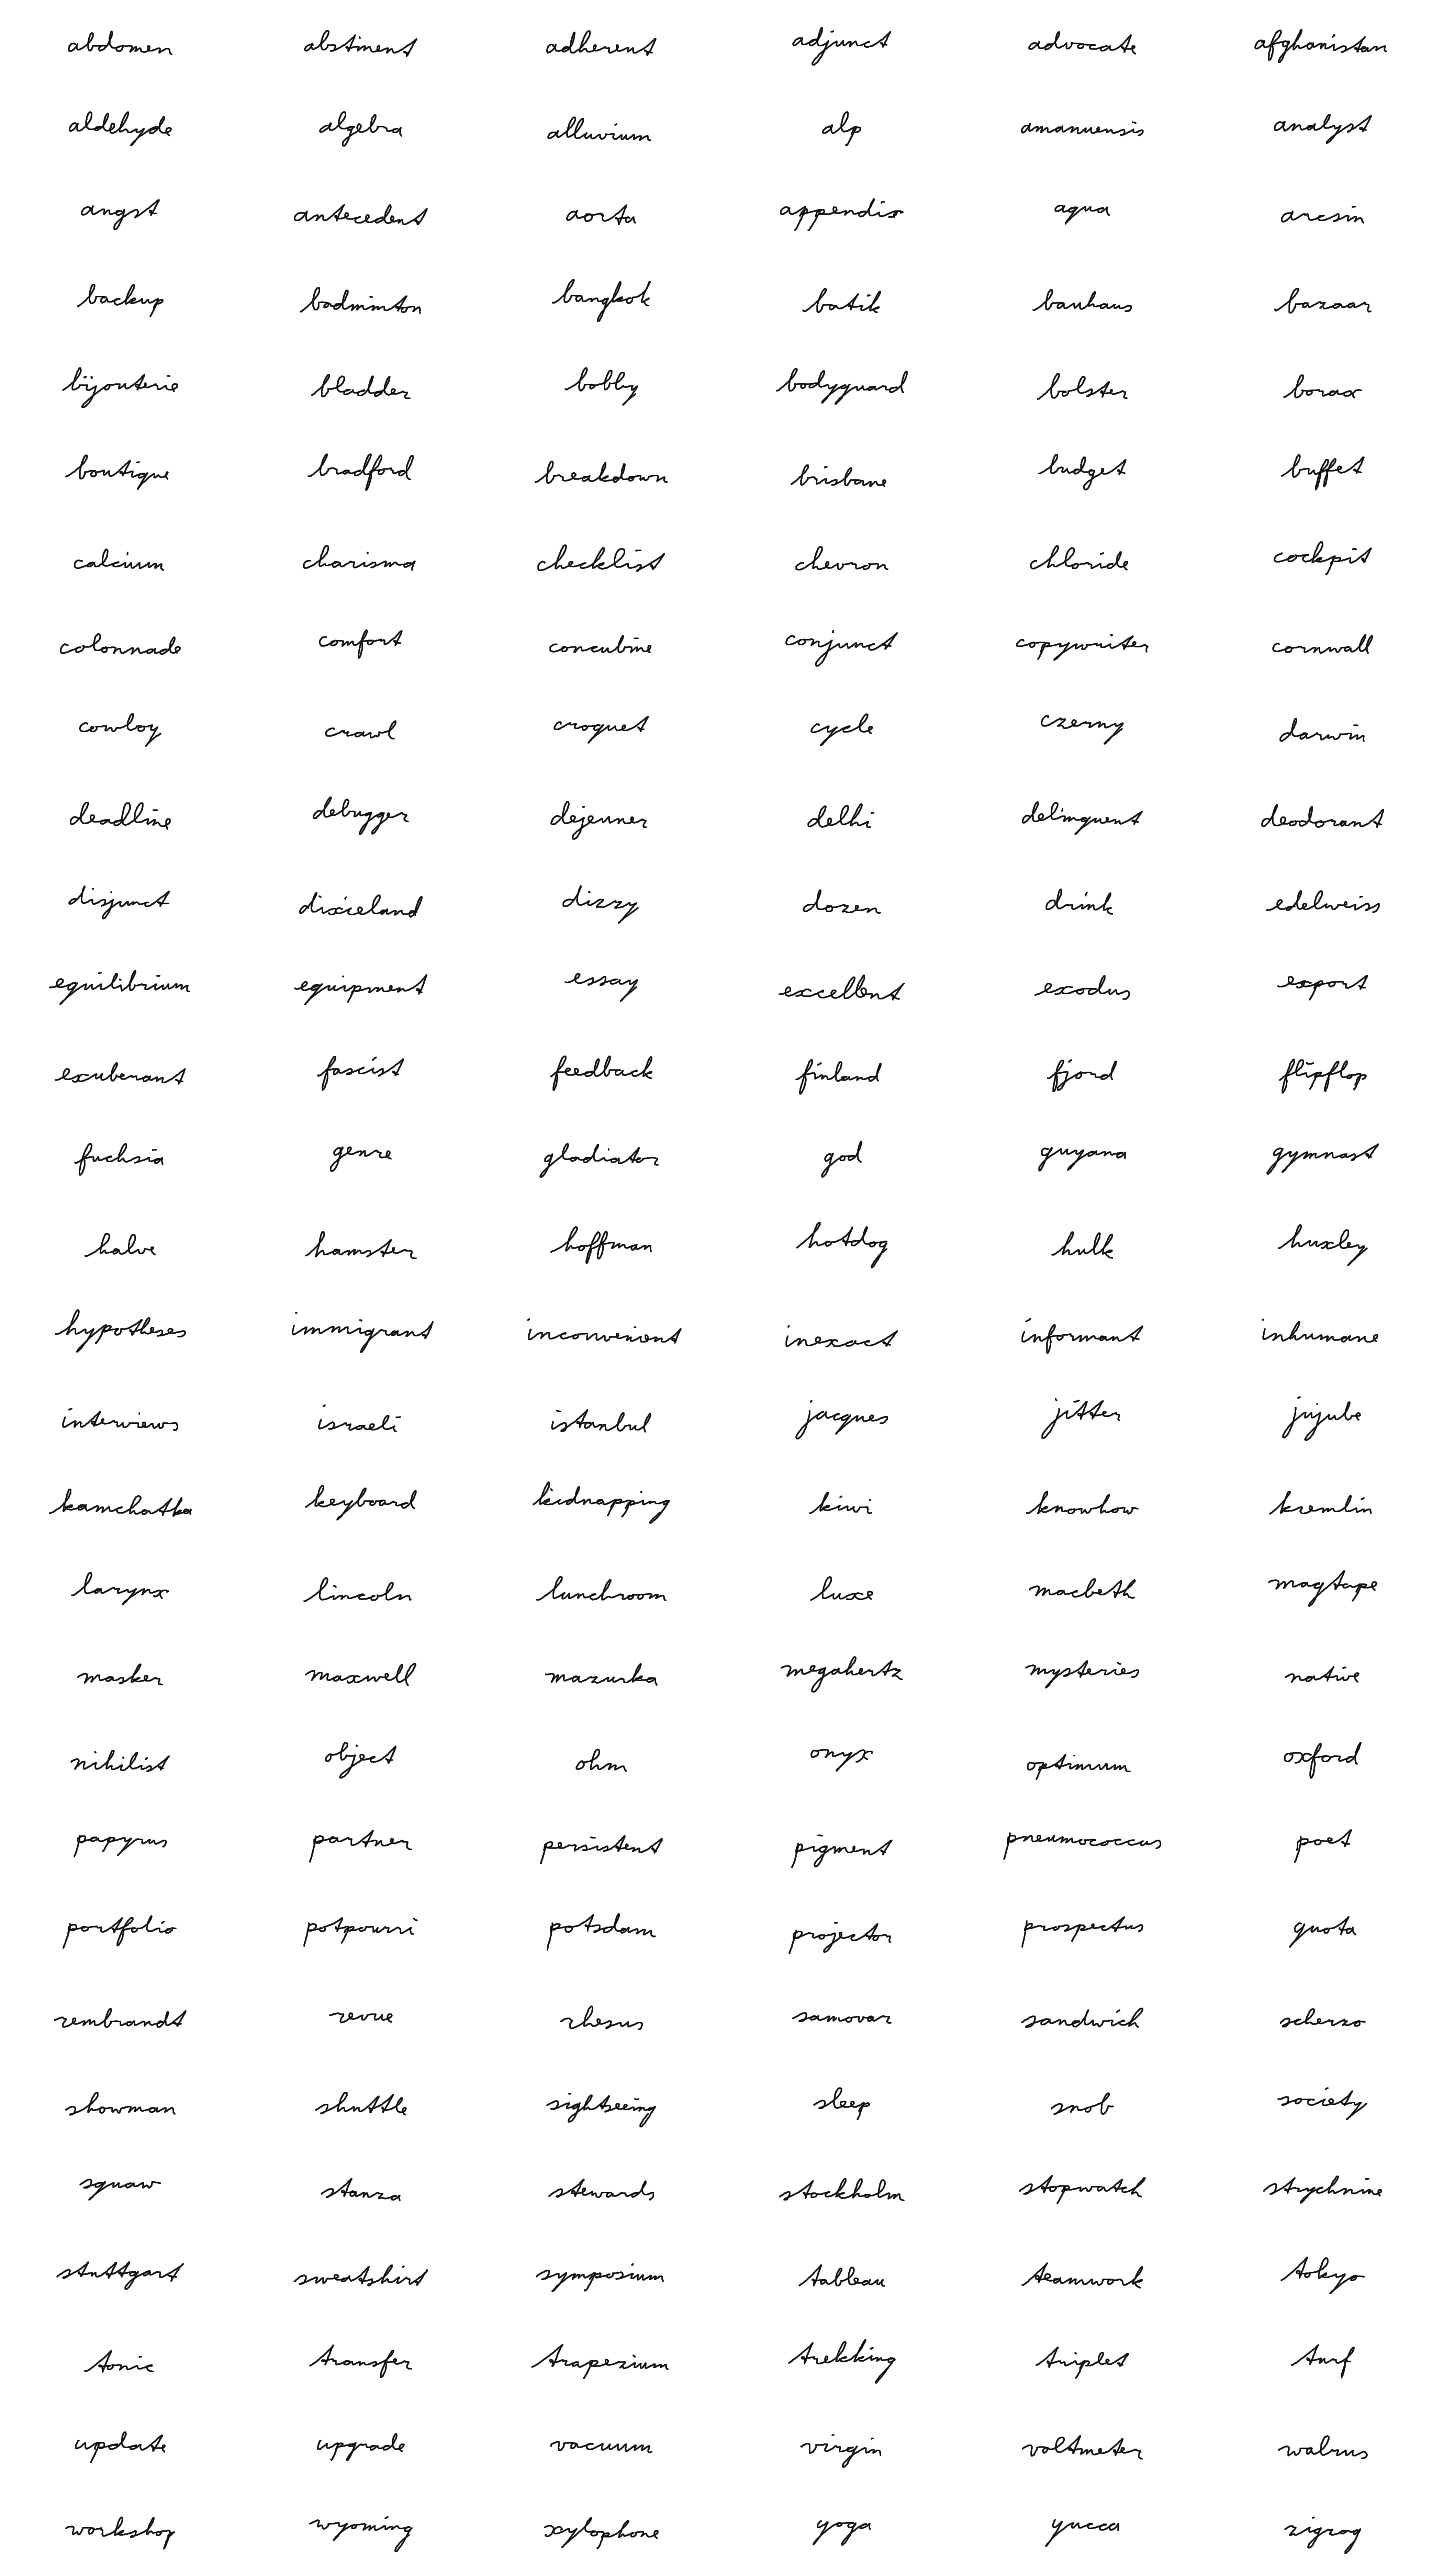 abdomen abstinent adherent adjunct advocate afghanistan
aldehyde algebra alluvium alp amanuensis analyst
angst antecedent aorta appendix aqua arcsin
backup badminton bangkok batik bauhaus bazaar
bijouterie bladder bobby bodyguard bolster borax
boutique bradford breakdown brisbane budget buffet
calcium charisma checklist chevron chloride cockpit
colonnade comfort concubine conjunct copywriter cornwall
cowboy crawl croquet cycle czerny darwin
deadline debugger dejeuner delhi delinquent deodorant
disjunct dixieland dizzy dozen drink edelweiss
equilibrium equipment essay excellent exodus export
exuberant fascist feedback finland fjord flipflop
fuchsia genre gladiator god guyana gymnast
halve hamster hoffman hotdog hulk huxley
hypotheses immigrant inconvenient inexact informant inhumane
interviews israeli istanbul jacques jitter jujube
kamchatka keyboard kidnapping kiwi knowhow kremlin
larynx lincoln lunchroom luxe macbeth magtape
masker maxwell mazurka megahertz mysteries native
nihilist object ohm onyx optimum oxford
papyrus partner persistent pigment pneumococcus poet
portfolio potpourri potsdam projector prospectus quota
rembrandt revue rhesus samovar sandwich scherzo
showman shuttle sightseeing sleep snob society
squaw stanza stewards stockholm stopwatch strychnine
stuttgart sweatshirt symposium tableau teamwork tokyo
tonic transfer trapezium trekking triplet turf
update upgrade vacuum virgin voltmeter walrus
workshop wyoming xylophone yoga yucca zigzag